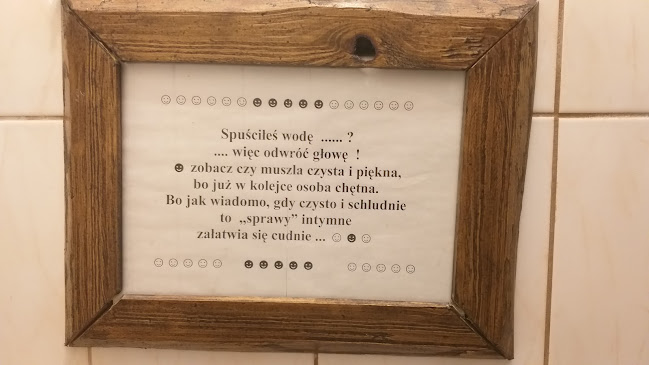 ☺☺☺☺☺☺☻☻☻☻☻☺☺☺☺☺☺
Spuściłeś wodę ...... ?
.... więc odwróć głowę !
☻ zobacz czy muszla czysta i piękna,
bo już w kolejce osoba chętna.
Bo jak wiadomo, gdy czysto i schludnie
to „sprawy” intymne
załatwia się cudnie ... ☺☻☺
☺☺☺☺☺ ☻☻☻☻☻ ☺☺☺☺☺